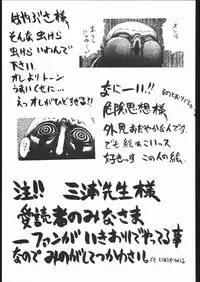 はやぶさ様、
そんな虫けら
虫けらいわんで
下さい。
オレよりトーン
うまいくせに…
えっオレがひどすぎる?!
なにーい!!
危険思想様
外見おだやかな人です。
でも絵はめにいっス
好きっす この人の絵。
注!! 三浦先生様
愛読者のみなさま
一ファンがいきおいでやってる事
なので みのがしてつかわさい。